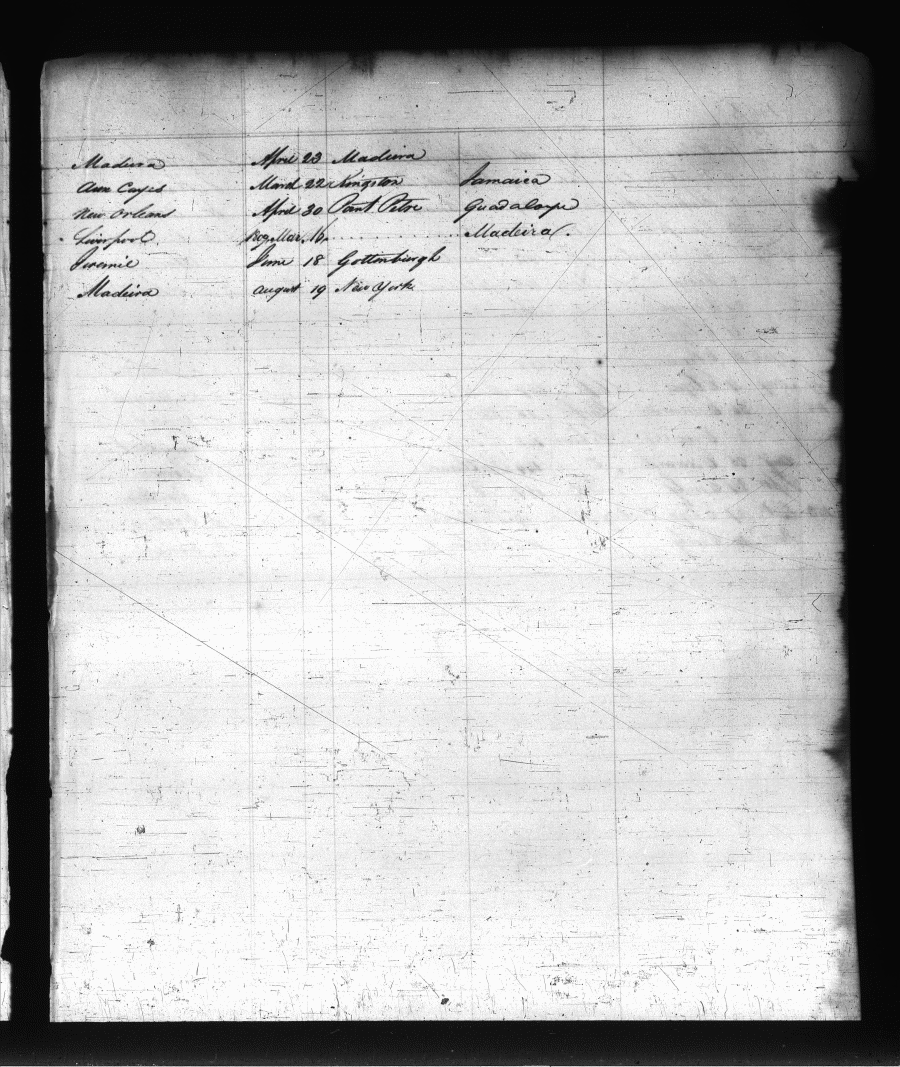 Madeira April 23 Madeira
Aux Cayes March 22 Kingston Jamaica
New Orleans April 30 Pant Petre Guadaloupe
Liverpool Mar. 16 Madeira.
Jeremie June 18 Gottenburgh
Madeira August 19 New York